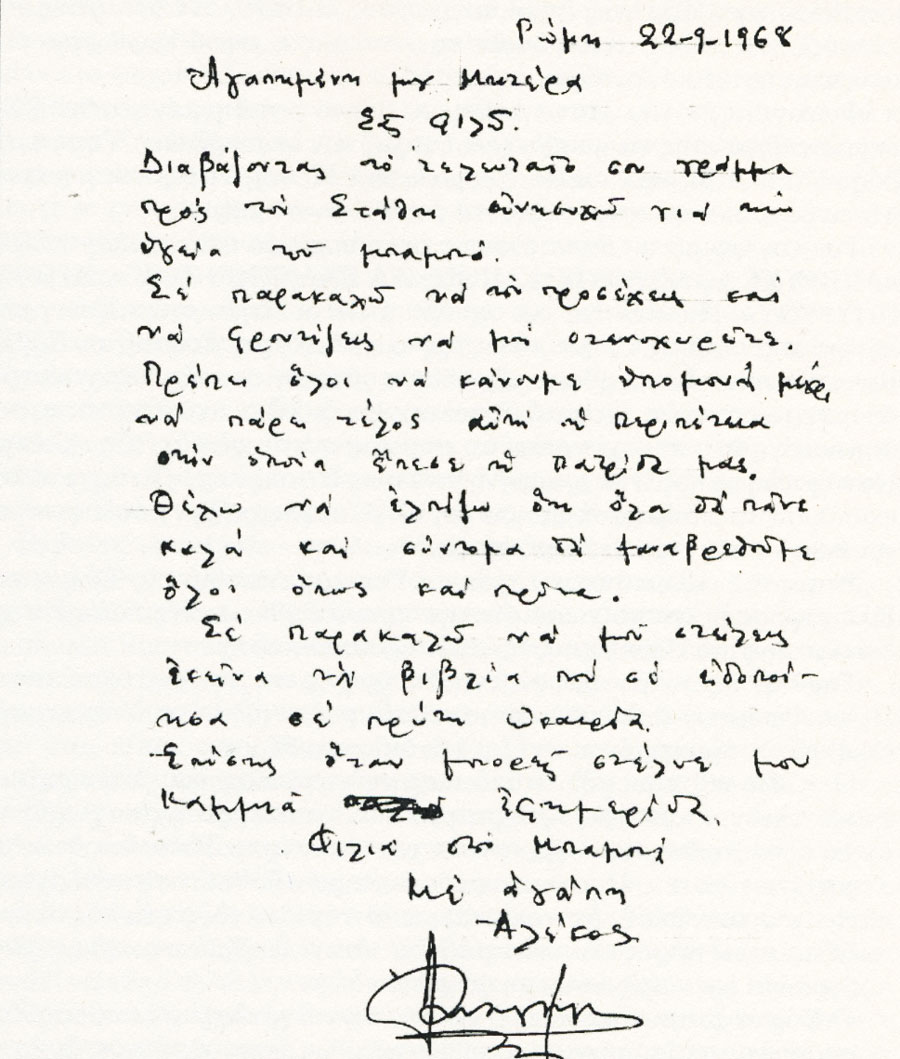 Ρώμη 22-9-1968
Ἀγαπημένη μου Μητέρα
Σὲ φιλῶ.
Διαβάζοντας τὸ τελευταῖο σου γράμμα
πρὸς τὸν Στάθη ἀνησυχῶ γιὰ τὴν
ὑγεία τοῦ μπαμπᾶ.
Σὲ παρακαλῶ νὰ τὸν προσέχεις και
νὰ φροντίζεις νὰ μὴ στενοχωρεῖται.
Πρέπει ὅλοι νὰ κάνουμε ὑπομονὴ μέχρι
νὰ πάρει τέλος αὐτὴ ἡ περιπέτεια
στὴν ὁποία ἔπεσε ἡ Πατρίδα μας.
Θέλω νὰ ἐλπίζω ὅτι ὅλα θὰ πᾶνε
καλὰ καὶ σύντομα θὰ ξαναβρεθοῦμε
ὅλοι ὅπως καὶ πρῶτα.
Σὲ παρακαλῶ νὰ μοῦ στείλεις
ἐκεῖνα τὰ βιβλία ποὺ σὲ εἰδοποί-
ησα σὲ πρώτη εὐκαιρία.
Ἐπίσης ὅταν μπορεῖς στέλνε μου
καμμιὰ ἐφημερίδα.
Φιλιὰ στὸ Μπαμπά
Μὲ ἀγάπη
Ἀλέκος